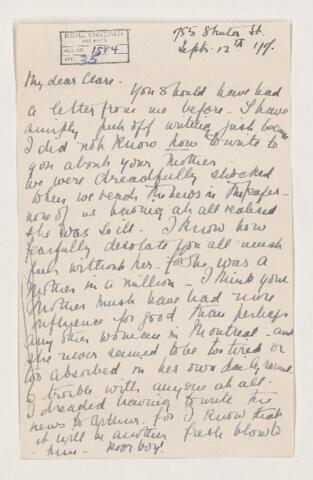 McGILL UNIVERSITY
ARCHIVES
ACC. NO. 1584
REF. 35
755 Shuter St.
Sept. 12th '17.
My dear Clare.
You should have had
a letter from me before - I have
simply put off writing just because
I did not know how to write to
you about your Mother.
We were dreadfully shocked
when we read the news in the paper -
none of us having at all realised
she was so ill. I know how
fearfully desolate you all must
feel without her - for she was a
Mother in a million - I think your
Mother must have had more
influence for good than perhaps
any other woman in Montreal - and
she never seemed to be too tired or
too absorbed in her own daily round
& trouble with anyone at all.
I dreaded having to write the
news to Arthur. for I know that
it will be another fresh blow to
him - poor boy!